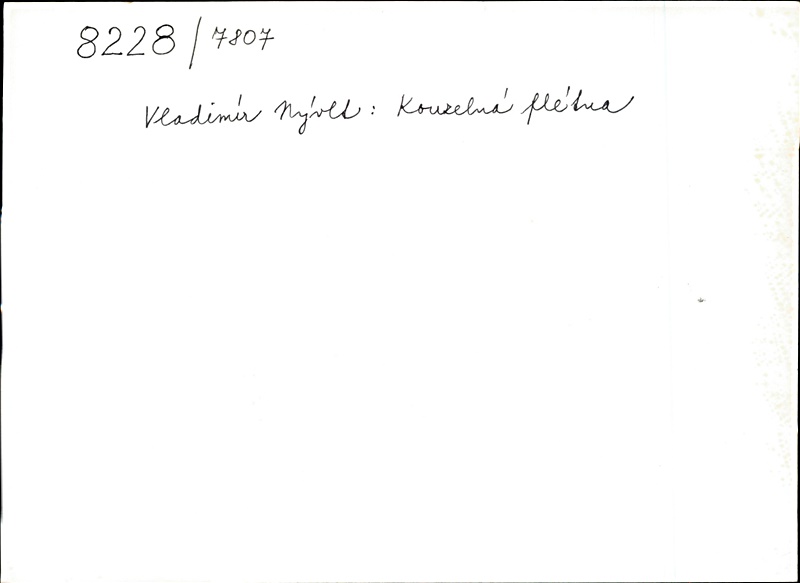 8228/7807
Vladimír Nývlt: Kouzelná flétna